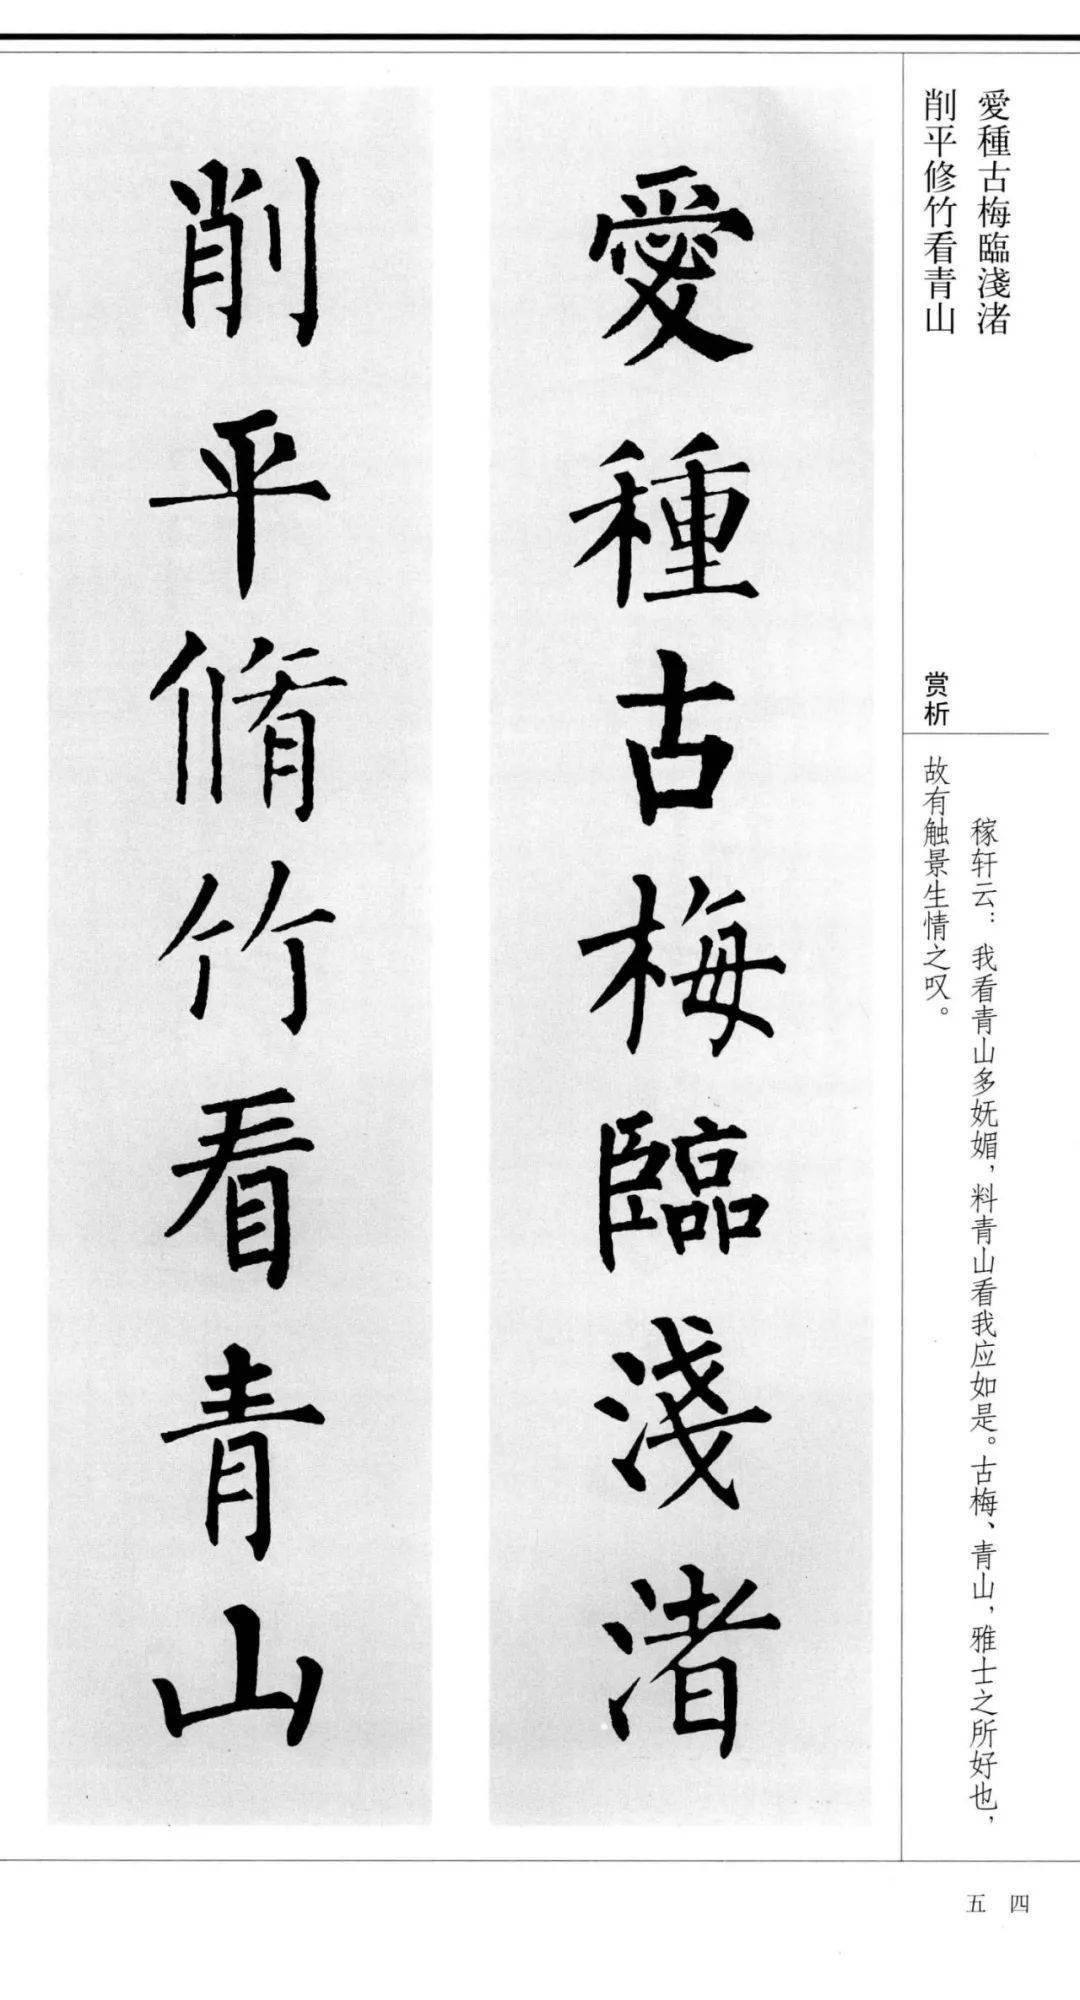 愛種古梅臨淺渚
削平修竹看青山
赏析
稼轩云：我看青山多妩媚，料青山看我应如是。古梅、青山，雅士之所好也，
故有触景生情之叹。
愛種古梅臨淺渚
削平脩竹看青山
五四